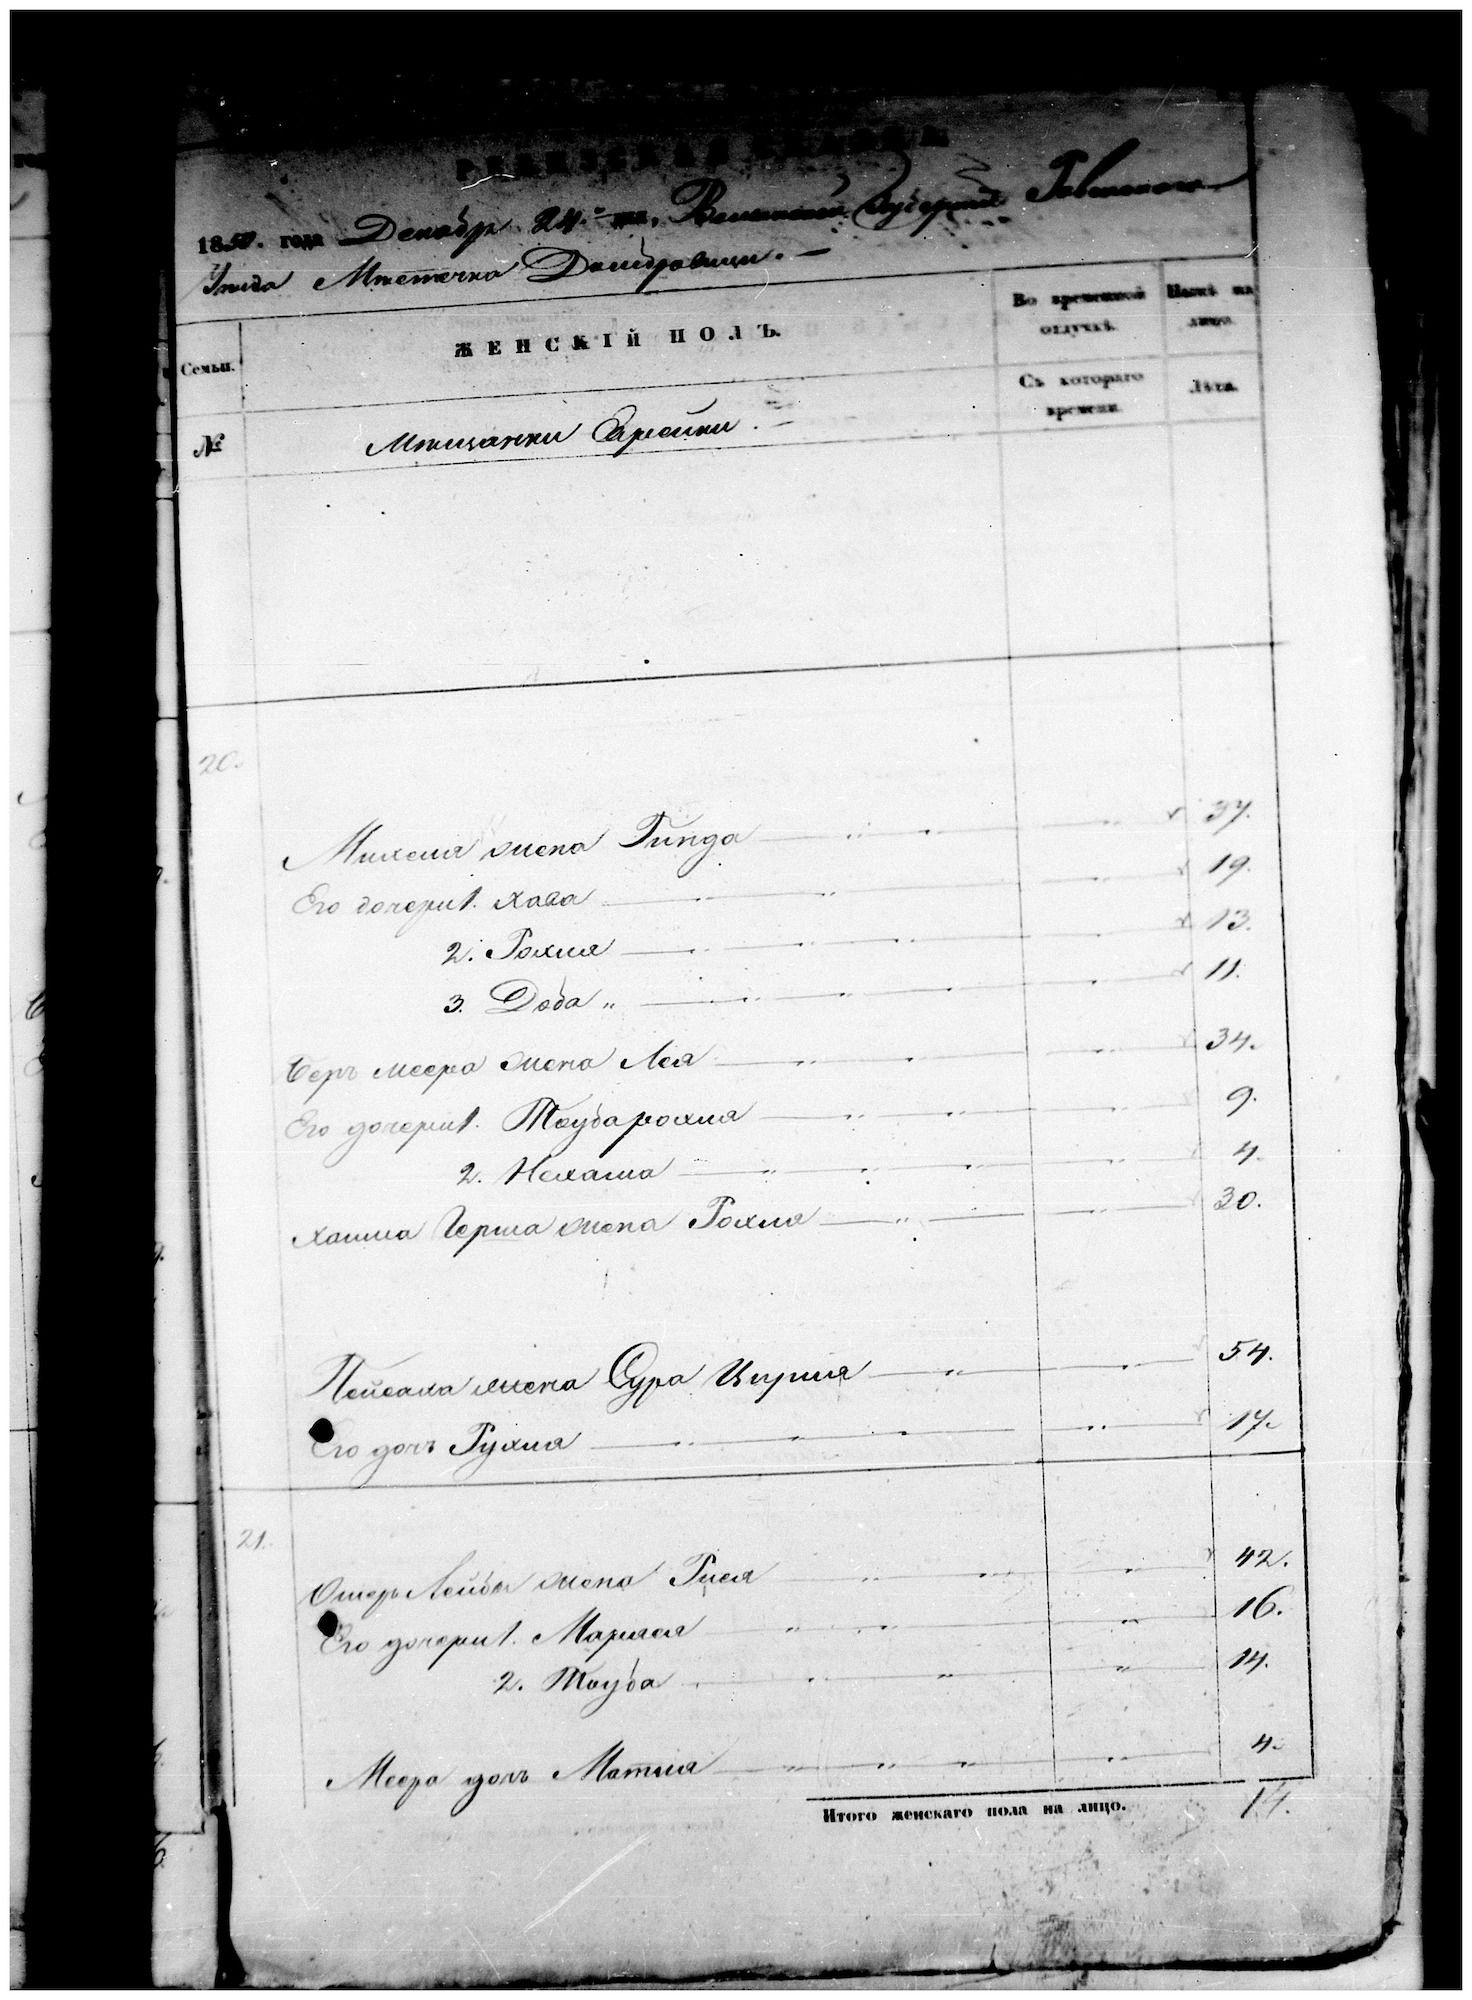 РЕВИЗСКАЯ СКАЗКА
1850. года Декабр 24.го дня, Волынской Губерніи Ровенского
Уѣзда Мѣстечка Домбровици. —
Семьи.
ЖЕНСКІЙ ПОЛЪ.
Во временной отлучкѣ.
Нынѣ на лицо.
Съ котораго времени.
Лѣта.
№
Мѣщанки Еврейки. —
20.
Михеля жена Гинда 37.
Его дочери 1. Хава 19.
2. Рохля 13.
3. Доба 11.
Беръ Меера жена Лея 34.
Его дочери 1. Таубарохля 9.
2. Нехама 4.
Хаима Герша жена Рохля 30.
Пейсаха жена Сура Цирля 54.
Его дочь Рухля 17.
21.
Ошеръ Лейбы жена Рися 42.
Его дочери 1. Маряся 16.
2. Тауба 14.
Меера дочь Матля 4.
Итого женскаго пола на лицо. 14.